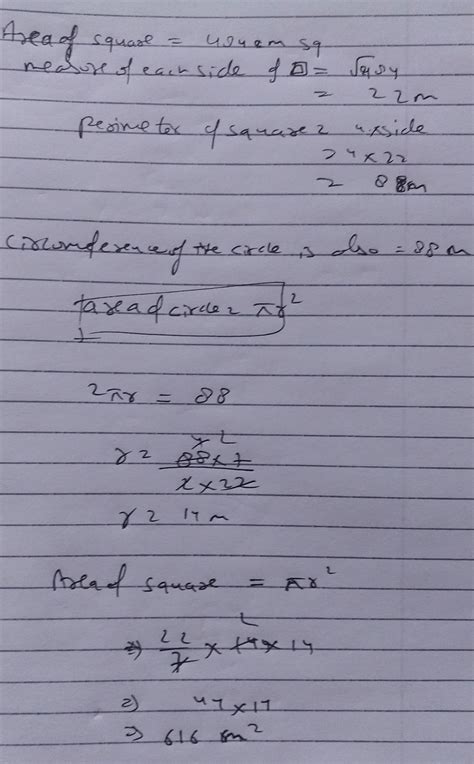 Area of square = 484 cm sq
measure of each side of □ = √484
= 22m
perimeter of square = 4×side
= 4×22
= 88m
circumference of the circle is also = 88 m
area of circle = πr²
2πr = 88
r = 88×7 / 2×22
r = 14 m
Area of square = πr²
⇒ 22/7 × 14 × 14
⇒ 44×14
⇒ 616 m²